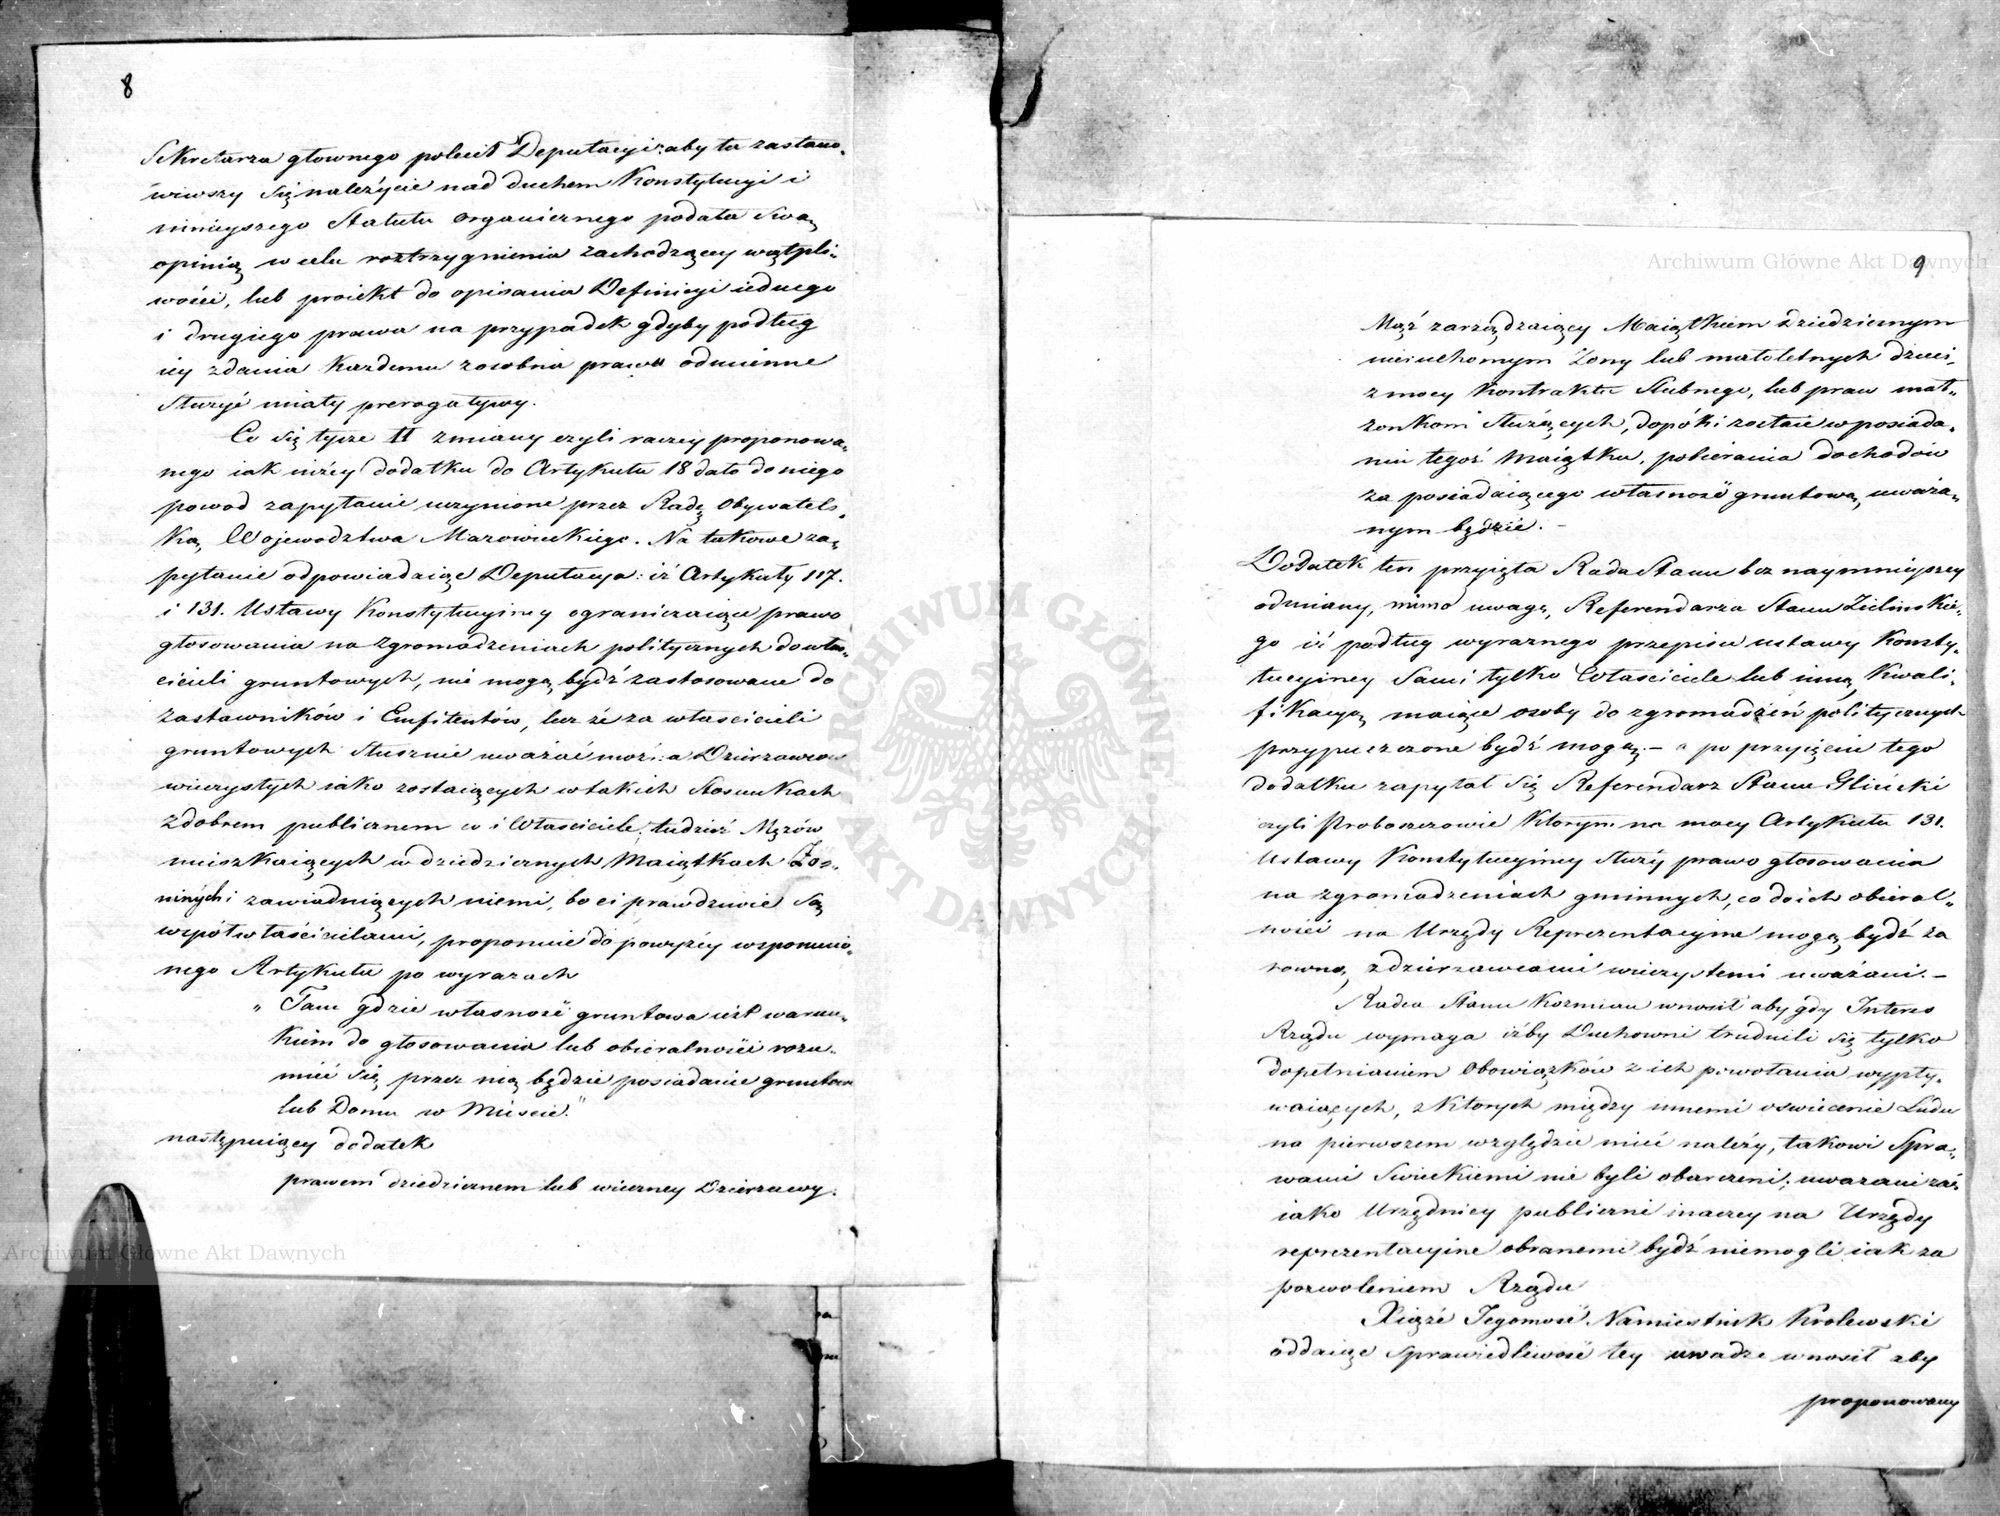 8
Sekretarza głownego polecił Deputacyi: aby ta zastano„
wiwszy się należycie nad duchem Konstytucyi i
ninieyszego Statutu Organicznego podała Swą
opinią w celu rostrzygnienia zachodzącey wątpli„
wości, lub proiekt do opisania Definicyi iednego
i drugiego prawa na przypadek gdyby podług
iey zdania każdemu zosobna prawu odmienne
służyć miały prerogatywy.
Co się tycze II zmiany czyli raczey proponowa„
nego iak niżey dodatku do Artykułu 18 dało do niego
powod zapytanie uczynione przez Radę Obywatels„
ką Wojewodztwa Mazowieckiego. Na takowe za„
pytanie odpowiadaiąc Deputacya: iż Artykuły 117.
i 131. Ustawy Konstytucyiney ograniczaiące prawo
głosowania na zgromadzeniach politycznych do włas„
cicieli gruntowych, nie mogą bydź zastosowane do
zastawników i Emfiteutów, lecz że za właścicieli
gruntowych słusznie uważać można Dzierzawców
wieczystych iako zostaiących w takich stosunkach
z dobrem publicznem co i Właściciele; tudzież Mężów
mieszkaiących w dziedzicznych Maiątkach Żon„
ninych i zawiaduiących niemi, bo ci prawdziwie są
współwłaścicielami, proponuie do powyżey wspomnio„
nego Artykułu po wyrazach
„Tam gdzie własność gruntowa iest warun„
kiem do głosowania lub obieralności rozu„
mieć się przez nią będzie posiadanie gruntowe
lub Domu w Mieście."
następuiący dodatek
prawem dziedzicznem lub wieczney Dzierzawy.
9
Mąż zarządzaiący Maiątkiem dziedzicznym
nieruchomym Żony lub małoletnych dzieci,
z mocy Kontraktu Slubnego, lub praw mał„
żonkom służących, dopóki zostaie w posiada„
niu tegoż Maiątku, pobierania dochodów
za posiadaiącego własność gruntową uważa„
nym będzie. —
Dodatek ten przyięła Rada Stanu bez naymnieyszey
odmiany, mimo uwagę Referendarza Stanu Zielinskie„
go iż podług wyraznego przepisu ustawy Konsty„
tucyiney Sami tylko Właściciele lub inną Kwali„
fikacyą maiące osoby do zgromadzeń politycznych
przypuszczone bydź mogą. — a po przyięciu tego
dodatku zapytał się Referendarz Stanu Gliński
czyli Proboszczowie ktorym na mocy Artykułu 131.
Ustawy Konstytucyiney służy prawo głosowania
na zgromadzeniach gminnych, co do ich obieral„
ności na Urzędy Reprezentacyine mogą bydź za
rowno z dzierzawcami wieczystemi uważani. —
Radca Stanu Kozmian wnosił aby gdy Interes
Rządu wymaga iżby Duchowni trudnili się tylko
dopełnianiem Obowiązków z ich powołania wypły„
waiących, z ktorych między innemi oswiecenie Ludu
na pierwszem względzie mieć należy, takowi Spra„
wami Swieckiemi nie byli obarczeni; uważani zaś
iako Urzędnicy publiczni inaczey na Urzędy
reprezentacyine obranemi bydź niemogli iak za
pozwoleniem Rządu
Xiąże Jegomość Namiestnik Krolewski
oddaiąc sprawiedliwość tey uwadze wnosił aby
proponowany
Archiwum Główne Akt Dawnych
Archiwum Główne Akt Dawnych
ARCHIWUM GŁÓWNE AKT DAWNYCH